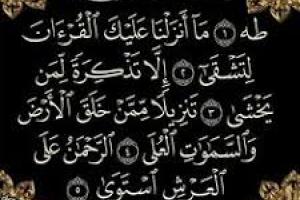 طه ۝١ مَآ أَنزَلْنَا عَلَيْكَ ٱلْقُرْءَانَ
لِتَشْقَىٰٓ ۝٢ إِلَّا تَذْكِرَةً لِّمَن
يَخْشَىٰ ۝٣ تَنزِيلًا مِّمَّنْ خَلَقَ ٱلْأَرْضَ
وَٱلسَّمَـٰوَٰتِ ٱلْعُلَى ۝٤ ٱلرَّحْمَـٰنُ عَلَى
ٱلْعَرْشِ ٱسْتَوَىٰ ۝٥